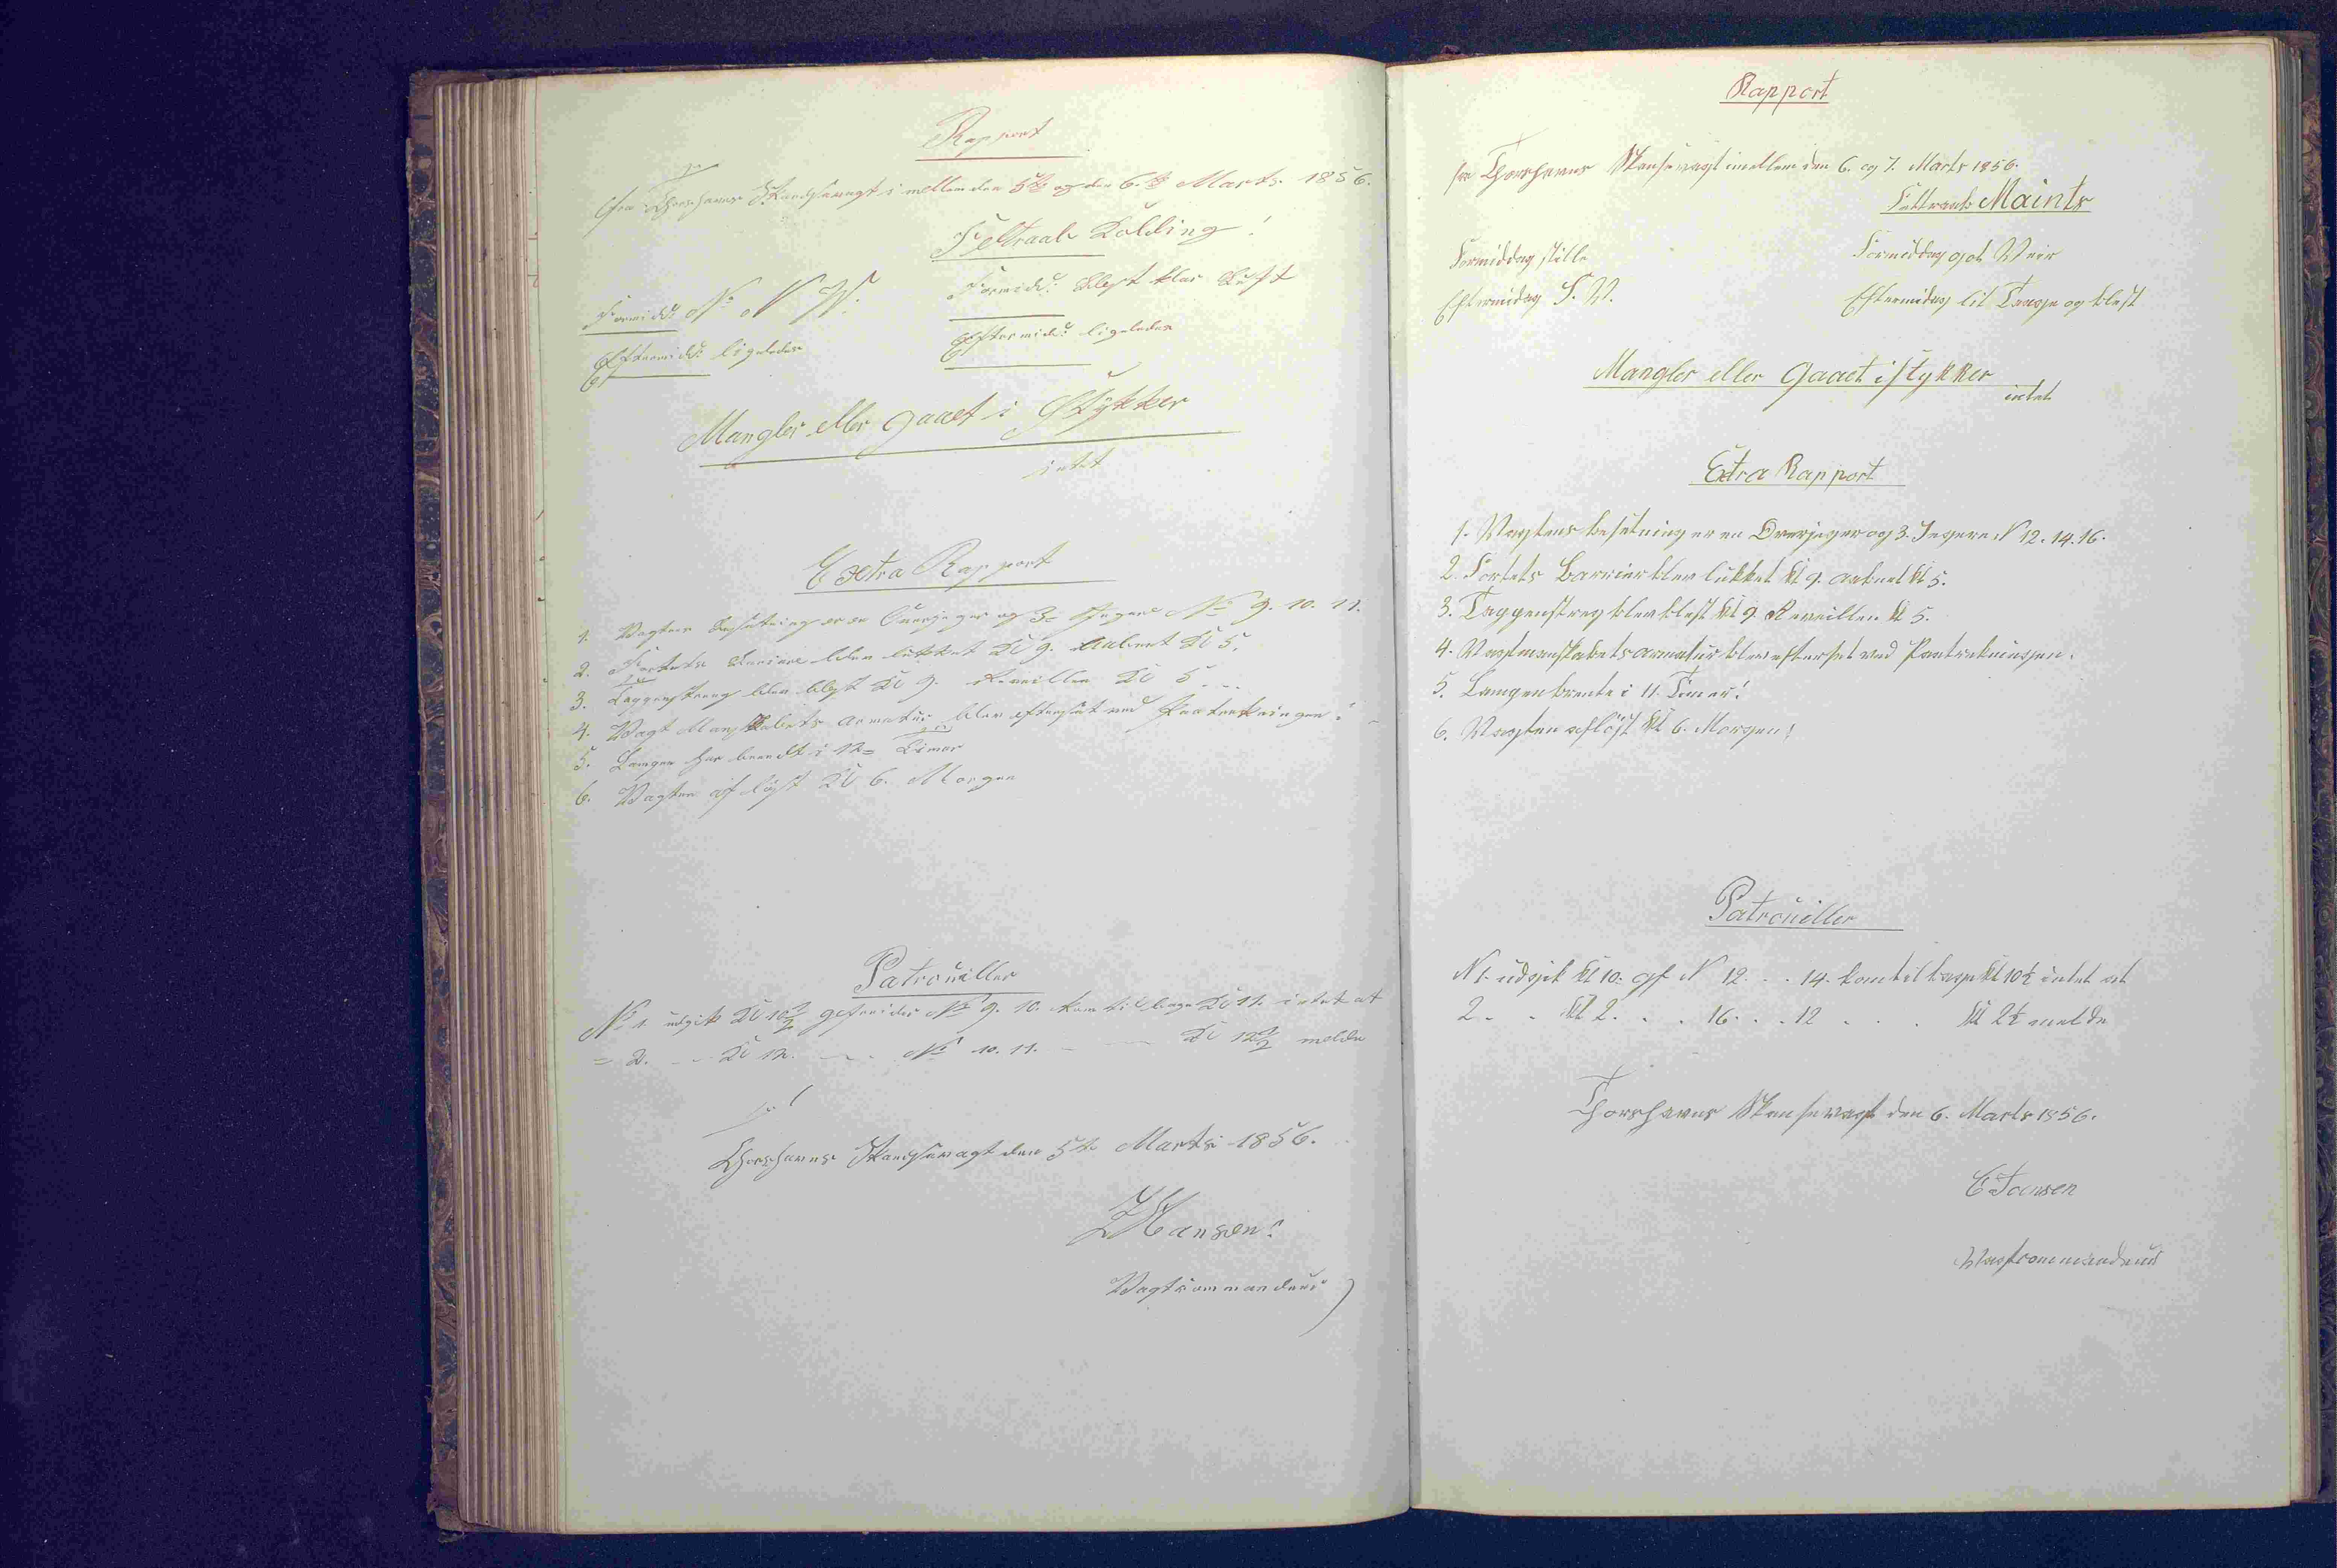 Rapport
fra Thorshavns Skandsevagt i mellem den 5te og den 6.te Marts 1856.
Feltraab Kolding!
Formidd: No N W.
Formidd: Blæst klar Luft
Eftermidd: ligeledes
Eftermidd: ligeledes
Mangler eller gaaet i Stykker
intet
Extra Rapport
1. Vagtens Besætning er en Overjæger og 3 Jægere No 9. 10. 11.
2. Fortets Barriere blev lukket Kl 9. Aabnet Kl 5.
3. Tappenstreg blev blæst Kl 9. Reveillen Kl 5...
4. Vagt Mandskabets Armatur blev efterset ved Paatrækningen:
5. Lampen har brændt i 12 Timer
6. Vagten afløst Kl 6. Morgen
Patrouiller
No 1. udgik Kl 10 1/2 gefreider No 9. 10. kom tilbage Kl 11. intet at
= 2. - - Kl 12. - - No 10. 11. - - Kl 12 1/2 melde
Thorshavns Skandsevagt den 5te Marts 1856.
Z Hansen:
Vagtcommandeur
Rapport
fra Thorshavns Skansevagt imellem den 6. og 7. Marts 1856.
Feltraab Maints
Formiddag stille
Formiddag got Veir
Eftermidag S. V.
Eftermidag lit Taage og blæst
Mangler eller Gaaet i stykker
intet
Extra Rapport
1. Vagtens besætning er en Overjæger og 3. Jegere N 12. 14. 16.
2. Fortets Barrier blev lukket kl 9. aabnet kl 5.
3. Tappenstreg blev blæst kl 9. Reveillen kl 5.
4. Vagtmanskabets armatur blev efterset ved Paatrekningen.
5. Lampen brente i 11. Timer!
6. Vagten afløst kl 6. Morgen!
Patrouiller
N 1. udgik kl 10. gf N 12. . . 14. kom tilbage kl 10½ intet at
2. . . kl 2. . . 16. . . 12 . . . kl 2½ melde
Thorshavns Skansevagt den 6. Marts 1856.
E Joensen
Vagtcommandeur